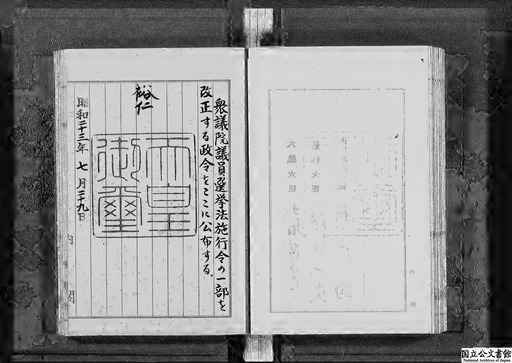 衆議院議員選挙法施行令の一部を
改正する政令をここに公布する。
裕仁
天皇
御璽
昭和二十三年 七月二十九日
内閣
大蔵大臣
内閣
国立公文書館
National Archives of Japan